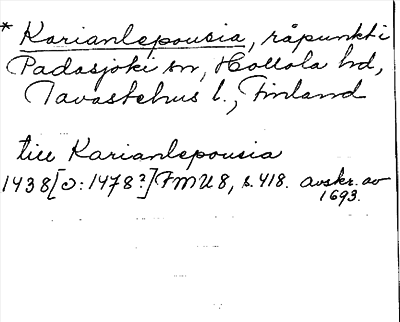 * Karianlepousia, råpunkt i
Padasjoki sn, Hollola hd,
Tavastehus l., Finland
till Karianlepousia
1438[ɔ: 1478?] FMU 8, s. 418. avskr. av
1693.